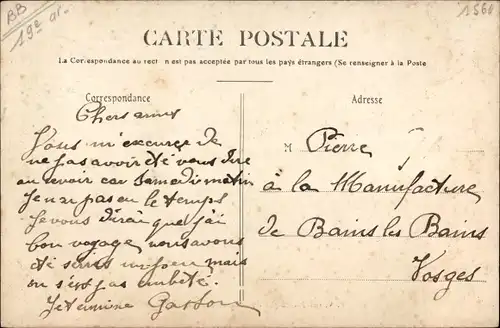 BB
19e ar.
1560
CARTE POSTALE
La Correspondance au recto n'est pas acceptée par tous les pays étrangers (Se renseigner à la Poste
Correspondance
Adresse
Chers amis
Vous m'excurez de
ne pas avoir été vous dire
au revoir car Samedi matin
Je n'ai pas eu le temps
Je vous dirai que j'ai
bon voyage, nous avons
été un peu mais
on s'est pas embêté.
Je termine Gaston
M Pierre
à la Manufacture
de Bains les Bains
Vosges